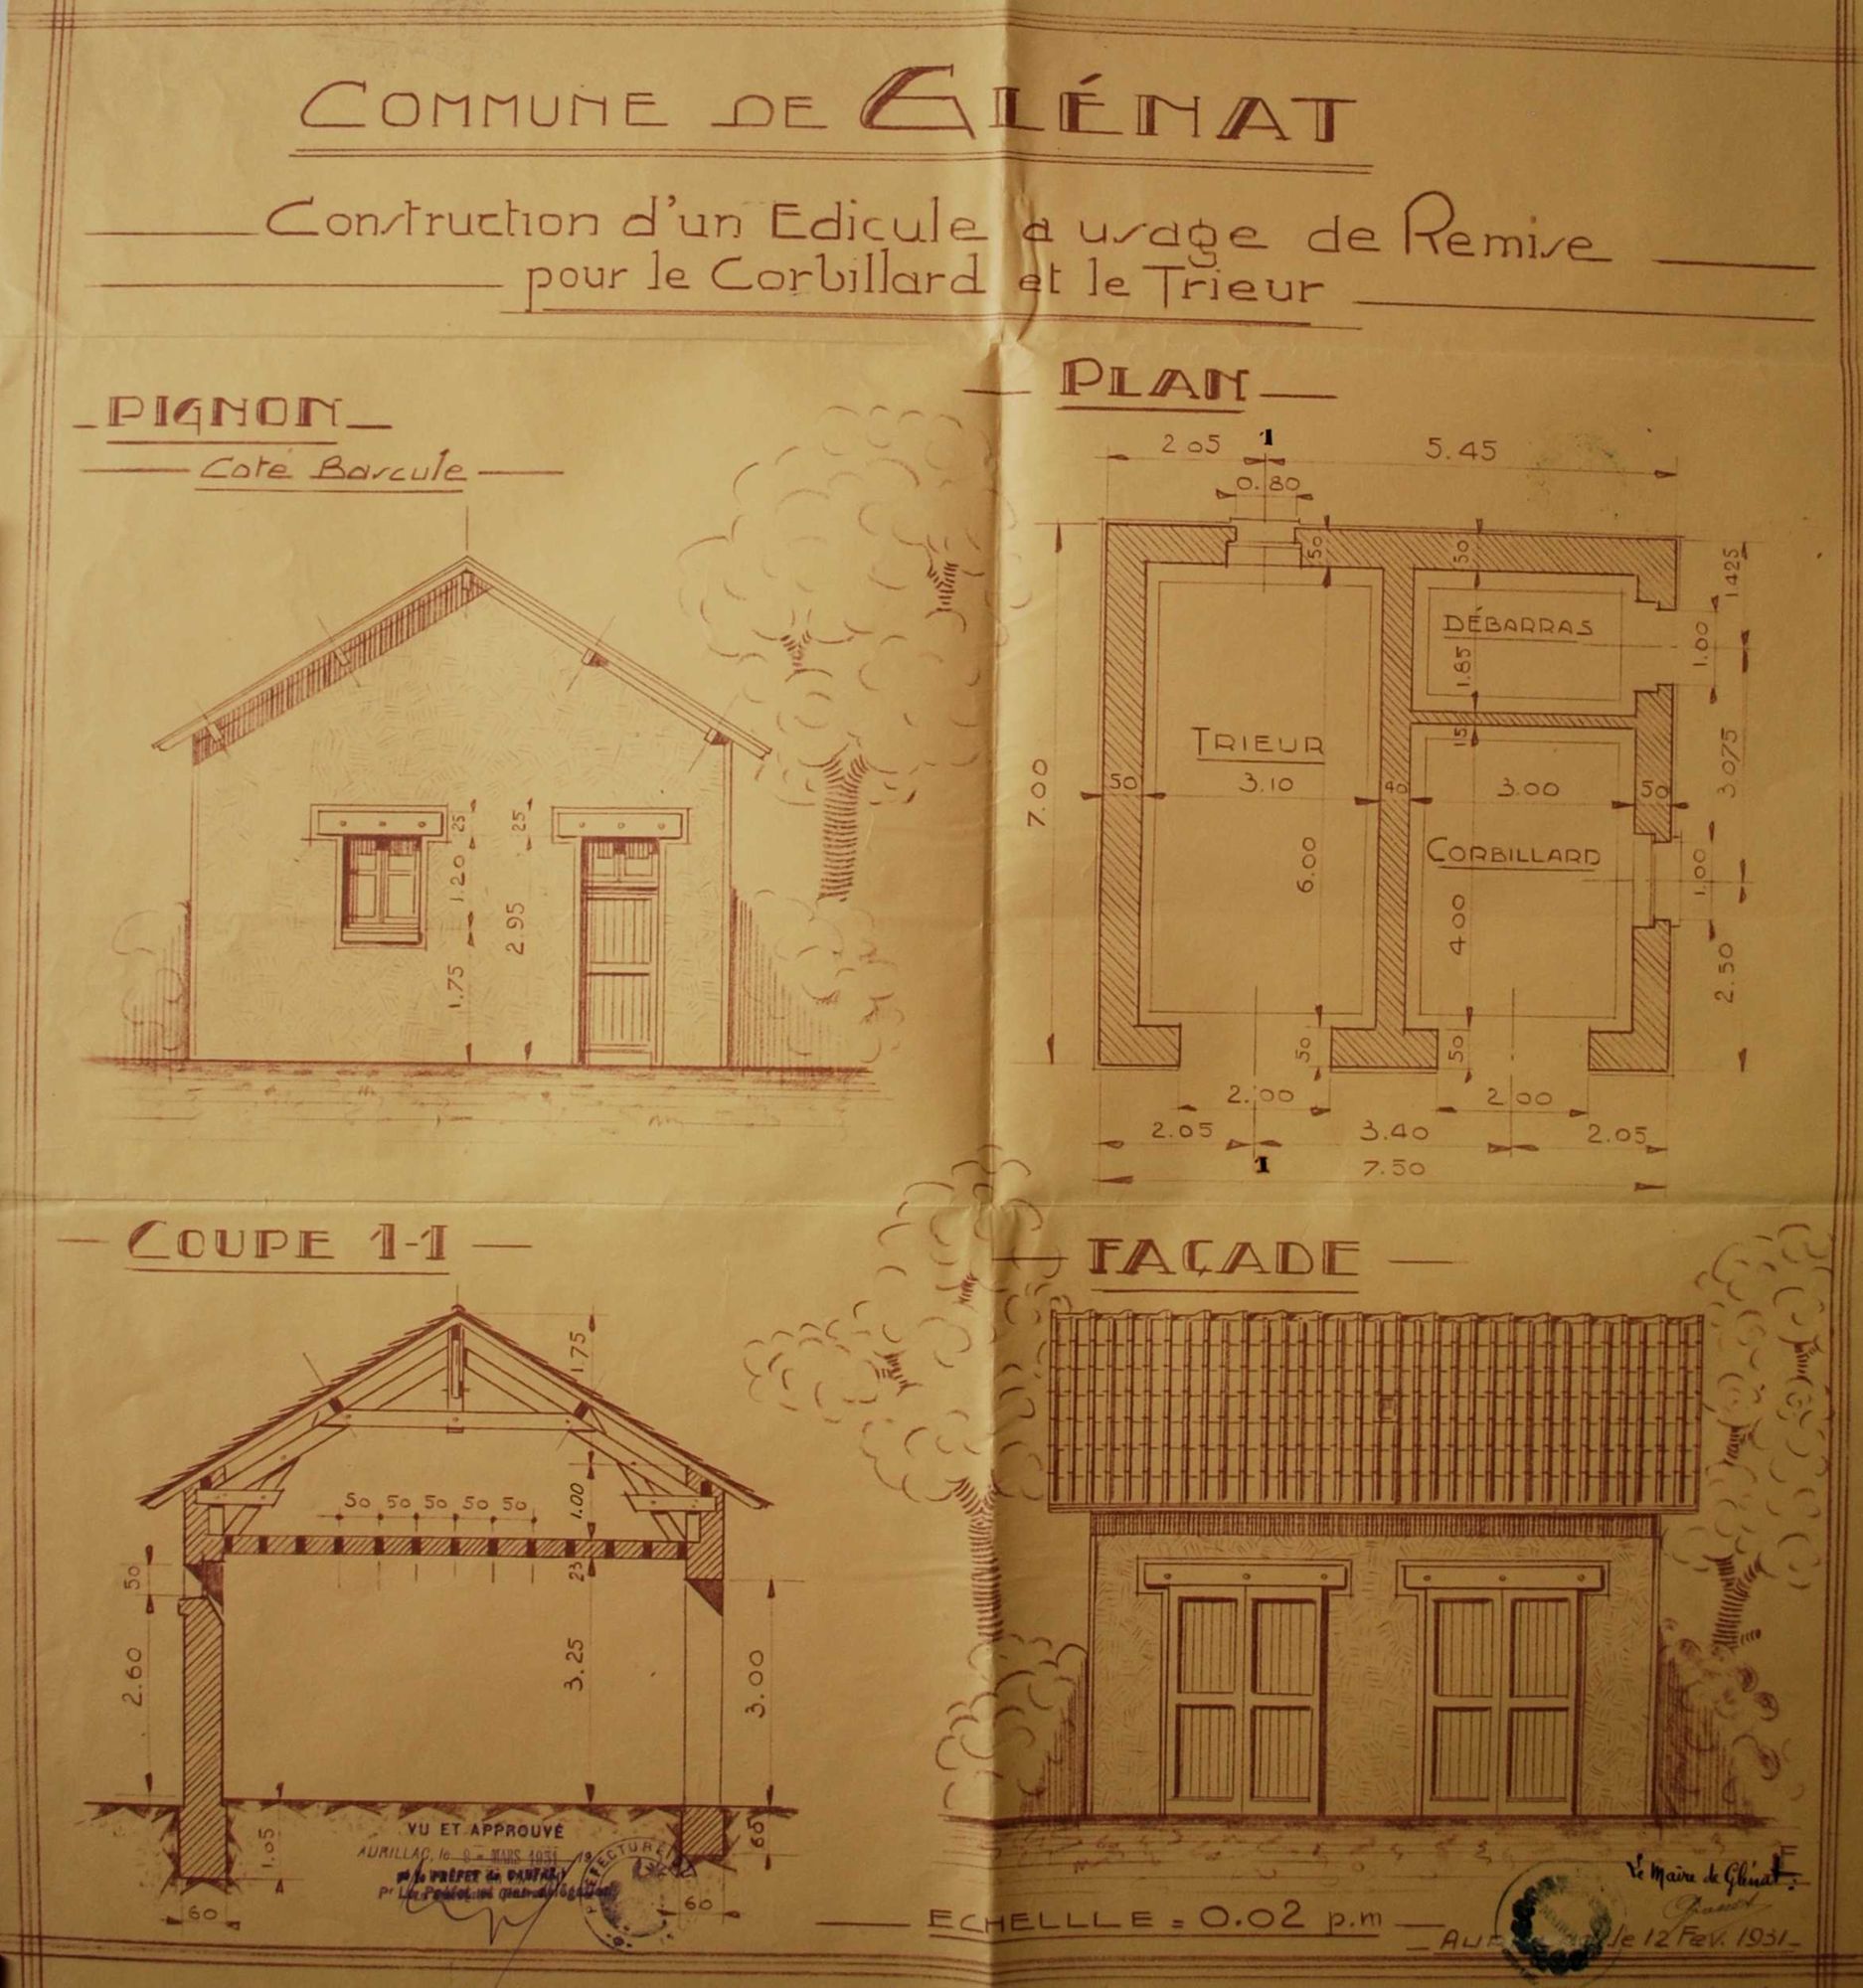 COMMUNE DE GLÉNAT
Construction d'un Edicule a usage de Remise
pour le Corbillard et le Trieur
PIGNON
Coté Bascule
25
25
1.20
2.95
1.75
PLAN
2 05
1
5.45
0.80
50
50
1.425
DÉBARRAS
1.00
1.85
TRIEUR
15
3.075
7.00
50
3.10
40
3.00
50
CORBILLARD
6.00
1.00
4.00
2.50
50
50
2.00
2.00
2.05
3.40
2.05
1
7.50
COUPE 1-1
1.75
50 50 50 50 50
1.00
50
23
2.60
3.25
3.00
1.05
60
60
60
VU ET APPROUVÉ
AURILLAC, le MARS 1931
FAÇADE
ECHELLLE = 0.02 p.m
Le Maire de Glénat
le 12 Fev. 1931